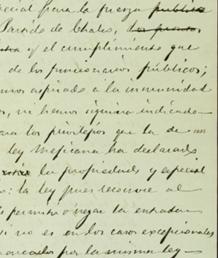 para la fuerza publica
Partido de Chalco,
y el cumplimiento que
de los funcionarios públicos;
aspirado a la inmunidad
ni hemos siquiera indicado
los privilegios que la
ley Mexicana ha declarado
la propiedad y especial
: la ley pues reconoce al
permitir o negar la entrada
si no es en los casos excepcionales
marcados por la misma ley